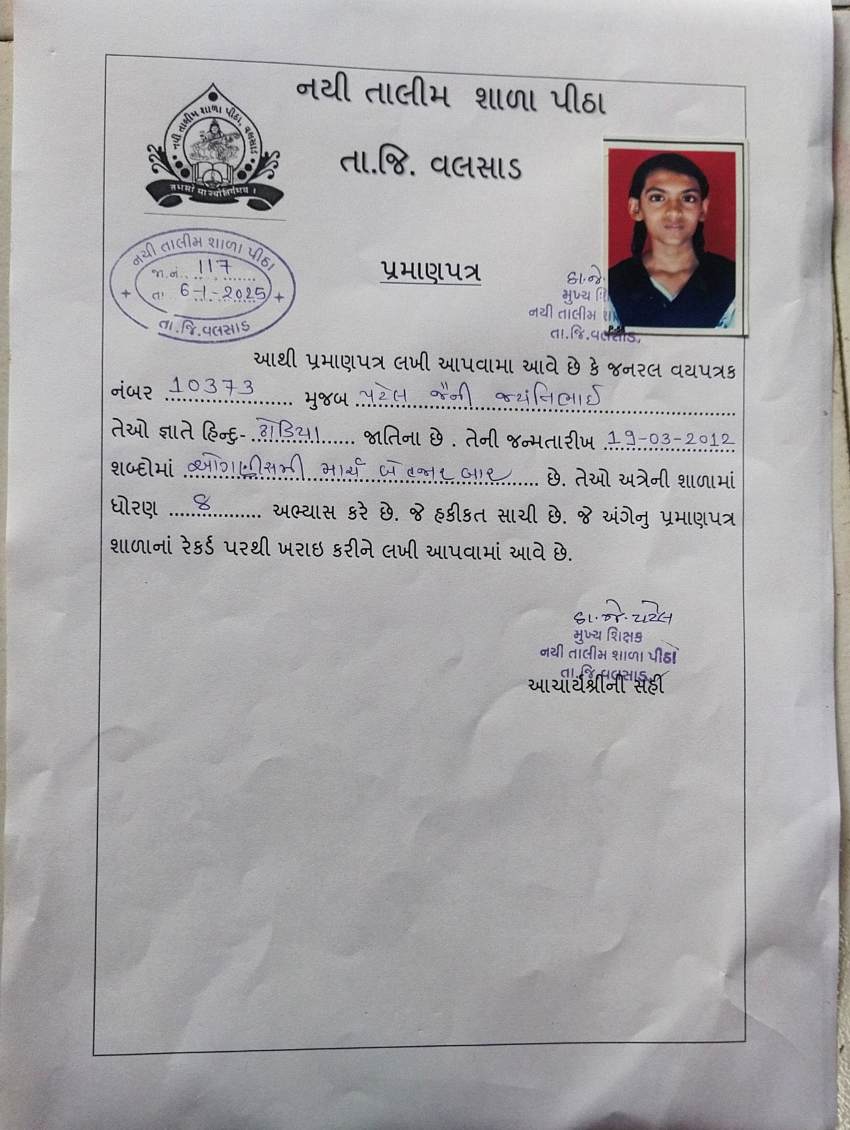 નયી તાલીમ શાળા પીઠા
નયી તાલીમ શાળા પીઠા, વલસાડ
તમસો મા જ્યોતિર્ગમય ।
તા.જિ. વલસાડ
નયી તાલીમ શાળા પીઠા
જા.નં. 117
તા. 6-1-2025
તા.જિ.વલસાડ
પ્રમાણપત્ર
મુખ્ય શિ
નયી તાલીમ શા
તા.જિ.વલસાડ.
આથી પ્રમાણપત્ર લખી આપવામા આવે છે કે જનરલ વયપત્રક
નંબર 10373 મુજબ પટેલ જૈની જયંતિભાઈ
તેઓ જ્ઞાતે હિન્દુ- ઢોડિયા જાતિના છે . તેની જન્મતારીખ 19-03-2012
શબ્દોમાં ઓગણીસમી માર્ચ બે હજાર બાર છે. તેઓ અત્રેની શાળામાં
ધોરણ ૪ અભ્યાસ કરે છે. જે હકીકત સાચી છે. જે અંગેનુ પ્રમાણપત્ર
શાળાનાં રેકર્ડ પરથી ખરાઇ કરીને લખી આપવામાં આવે છે.
પટેલ
મુખ્ય શિક્ષક
નયી તાલીમ શાળા પીઠા
તા.જિ.વલસાડ
આચાર્યશ્રીની સહી